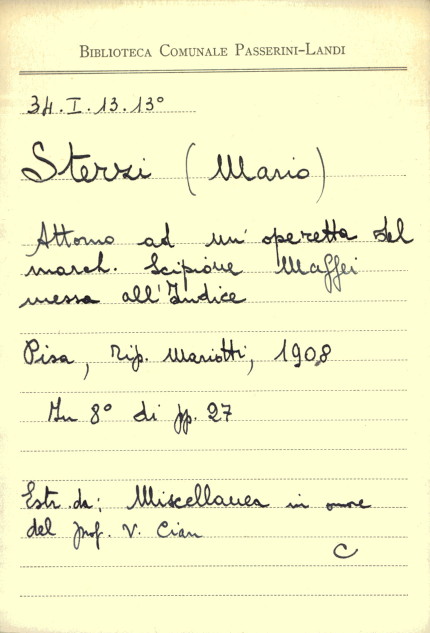 BIBLIOTECA COMUNALE PASSERINI-LANDI
34.I.13.13°
Sterzi (Mario)
Attorno ad un' operetta del
march. Scipione Maffei
messa all'Indice
Pisa, Tip. Mariotti, 1908
In 8° di pp. 27
Estr. da: Miscellanea in onore
del prof. V. Cian
C